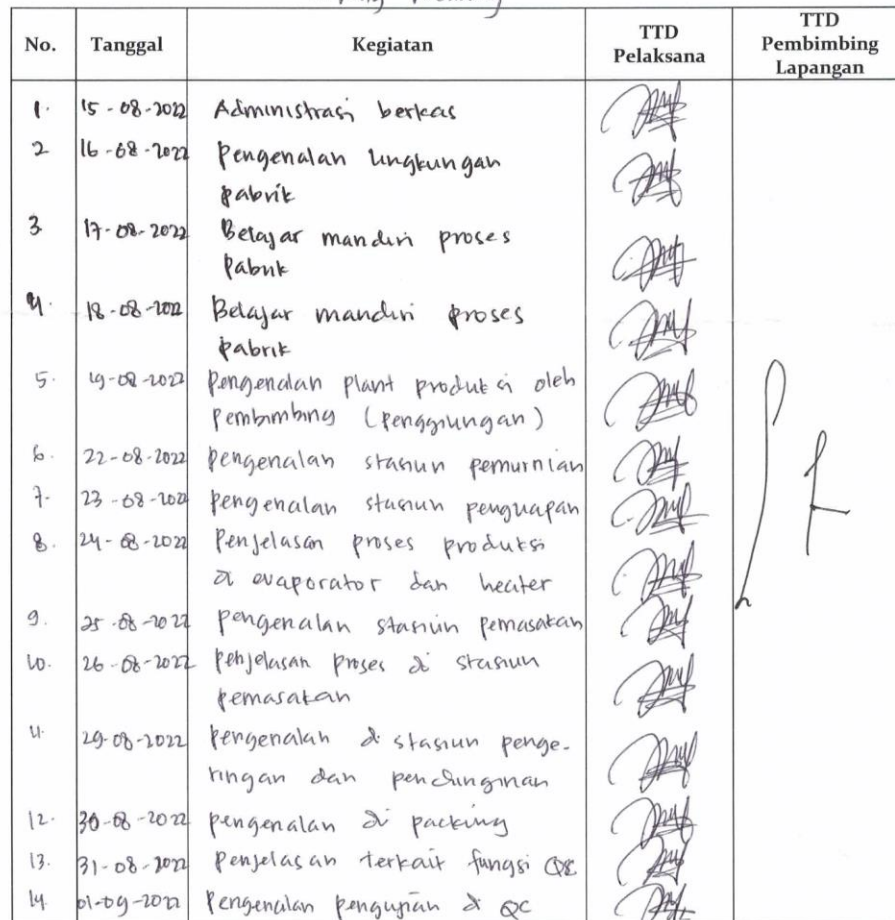 No. Tanggal Kegiatan TTD Pelaksana TTD Pembimbing Lapangan
1. 15-08-2022 Administrasi berkas
2 16-08-2022 Pengenalan lingkungan
pabrik
3. 17-08-2022 Belajar mandiri proses
Pabrik
4. 18-08-2022 Belajar mandiri proses
pabrik
5. 19-08-2022 Pengenalan plant produksi oleh
Pembimbing (Penggilingan)
6. 22-08-2022 Pengenalan stasiun pemurnian
7. 23-08-2022 Pengenalan stasiun penguapan
8. 24-08-2022 Penjelasan proses produksi
di evaporator dan heater
9. 25-08-2022 Pengenalan stasiun pemasakan
10. 26-08-2022 Penjelasan proses di stasiun
pemasakan
11. 29-08-2022 Pengenalan di stasiun penge-
ringan dan pendinginan
12. 30-08-2022 Pengenalan di packing
13. 31-08-2022 Penjelasan terkait fungsi QC
14. 01-09-2022 Pengenalan pengujian di QC